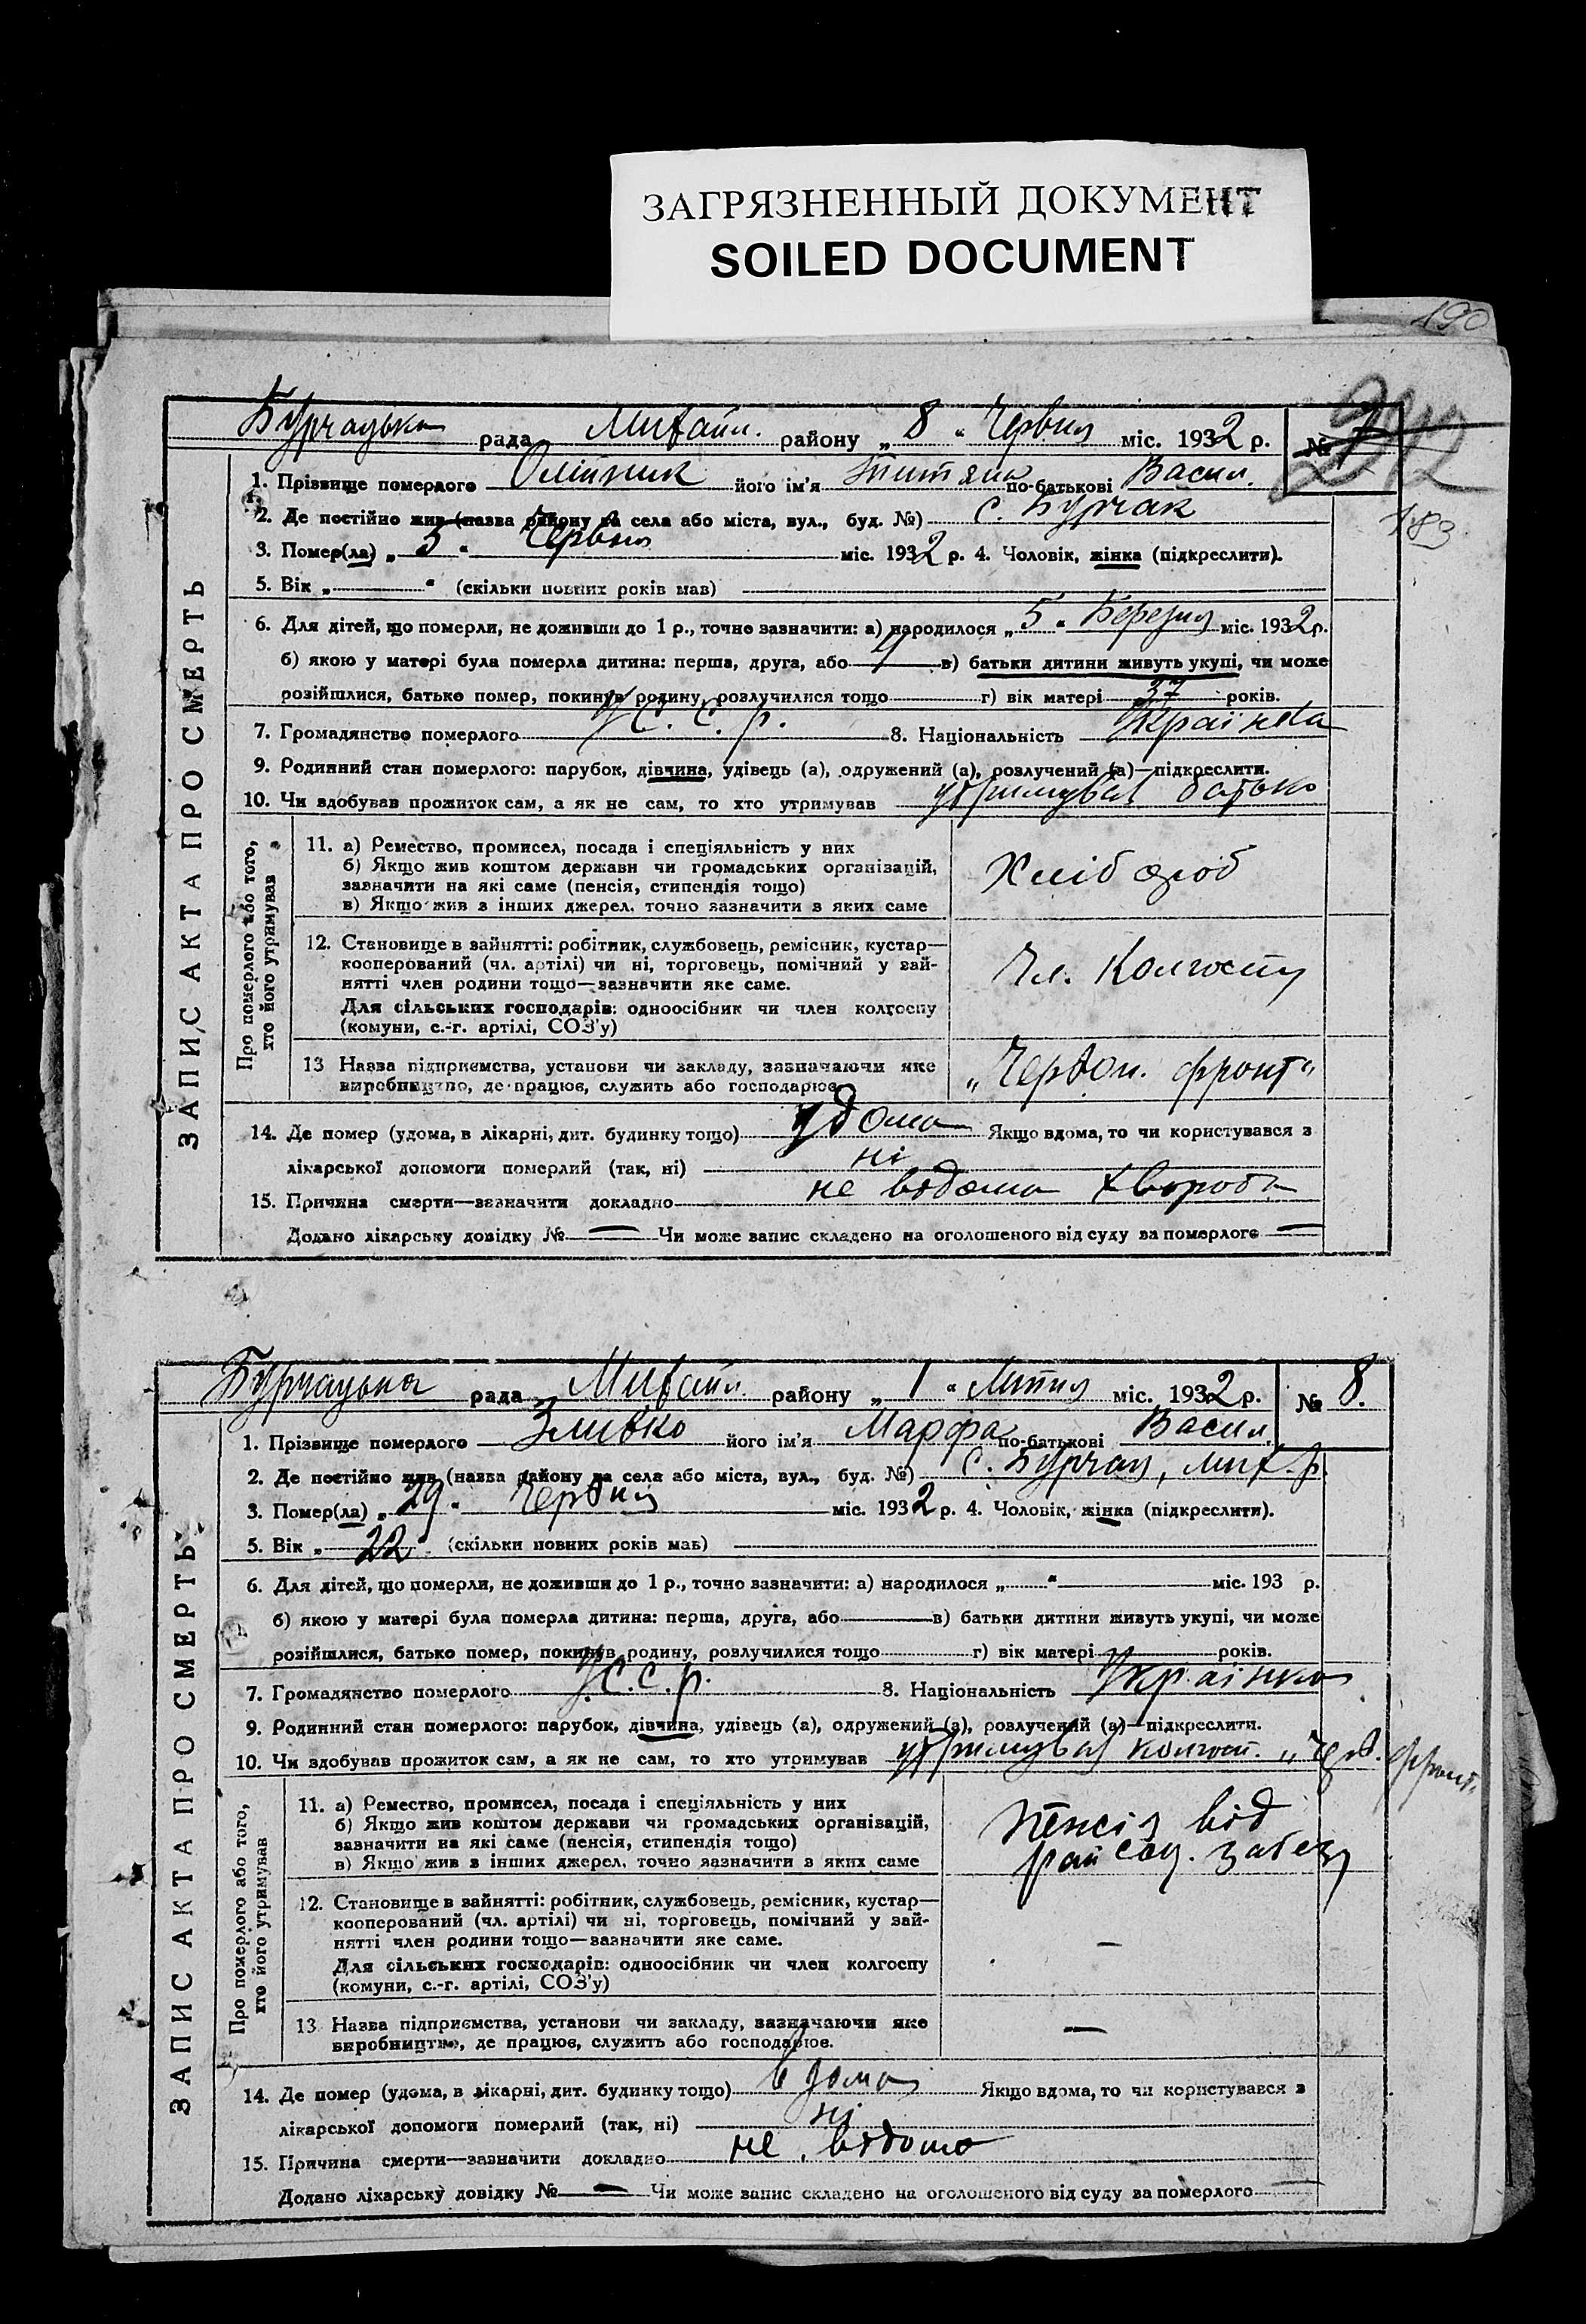 ЗАГРЯЗНЕННЫЙ ДОКУМЕНТ
SOILED DOCUMENT
190
Бурчацька рада Михайл. району „8“ Червня міс. 1932 р. № 7
212
183
ЗАПИС АКТА ПРО СМЕРТЬ
1. Прізвище померлого Олійник його ім'я Титяна по-батькові Васил.
2. Де постійно жив (назва району та села або міста, вул., буд. №) с. Бурчак
3. Помер(ла) „5“ Червня міс. 1932 р. 4. Чоловік, жінка (підкреслити).
5. Вік „ “ (скільки повних років мав)
6. Для дітей, що померли, не доживши до 1 р., точно зазначити: а) народилося „5“ Березня міс. 1932 р.
б) якою у матері була померла дитина: перша, друга, або в) батьки дитини живуть укупі, чи може
розійшлися, батько помер, покинув родину, розлучилися тощо г) вік матері 37 років.
7. Громадянство померлого У. С. С. р. 8. Національність Українка
9. Родинний стан померлого: парубок, дівчина, удівець (а), одружений (а), розлучений (а)—підкреслити.
10. Чи здобував прожиток сам, а як не сам, то хто утримував утримував батько
Про померлого або того,
хто його утримував
11. а) Ремество, промисел, посада і спеціяльність у них
б) Якщо жив коштом держави чи громадських організацій,
зазначити на які саме (пенсія, стипендія тощо)
в) Якщо жив з інших джерел, точно зазначити з яких саме
Хлібороб
12. Становище в зайнятті: робітник, службовець, ремісник, кустар—
кооперований (чл. артілі) чи ні, торговець, помічний у зай-
нятті член родини тощо—зазначити яке саме.
Для сільських господарів: одноосібник чи член колгоспу
(комуни, с.-г. артілі, СОЗ'у)
Чл. Колгоспу
13 Назва підприємства, установи чи закладу, зазначаючи яке
виробництво, де працює, служить або господарює
„Червон. фронт“
14. Де помер (удома, в лікарні, дит. будинку тощо) удома Якщо вдома, то чи користувався з
лікарської допомоги померлий (так, ні) ні
15. Причина смерти—зазначити докладно не відома хвороба
Додано лікарську довідку № — Чи може запис складено на оголошеного від суду за померлого —
Бурчацька рада Михайл. району „1“ Липня міс. 1932 р. № 8.
ЗАПИС АКТА ПРО СМЕРТЬ
1. Прізвище померлого Зливко його ім'я Марфа по-батькові Васил.
2. Де постійно жив (назва району та села або міста, вул., буд. №) с. Бурчак, мих. р.
3. Помер(ла) „29“ Червня міс. 1932 р. 4. Чоловік, жінка (підкреслити).
5. Вік „22“ (скільки повних років мав)
6. Для дітей, що померли, не доживши до 1 р., точно зазначити: а) народилося „ “ міс. 193 р.
б) якою у матері була померла дитина: перша, друга, або в) батьки дитини живуть укупі, чи може
розійшлися, батько помер, покинув родину, розлучилися тощо г) вік матері років.
7. Громадянство померлого У.С.С.р. 8. Національність Українка
9. Родинний стан померлого: парубок, дівчина, удівець (а), одружений (а), розлучений (а)—підкреслити.
10. Чи здобував прожиток сам, а як не сам, то хто утримував утримував колгосп. „Черв. фронт“
Про померлого або того,
хто його утримував
11. а) Ремество, промисел, посада і спеціяльність у них
б) Якщо жив коштом держави чи громадських організацій,
зазначити на які саме (пенсія, стипендія тощо)
в) Якщо жив з інших джерел, точно зазначити з яких саме
Пенсія від
рай соц. забезу
12. Становище в зайнятті: робітник, службовець, ремісник, кустар—
кооперований (чл. артілі) чи ні, торговець, помічний у зай-
нятті член родини тощо—зазначити яке саме.
Для сільських господарів: одноосібник чи член колгоспу
(комуни, с.-г. артілі, СОЗ'у)
—
13 Назва підприємства, установи чи закладу, зазначаючи яке
виробництво, де працює, служить або господарює.
—
14. Де помер (удома, в лікарні, дит. будинку тощо) вдома Якщо вдома, то чи користувався з
лікарської допомоги померлий (так, ні) ні
15. Причина смерти—зазначити докладно не відомо
Додано лікарську довідку № — Чи може запис складено на оголошеного від суду за померлого